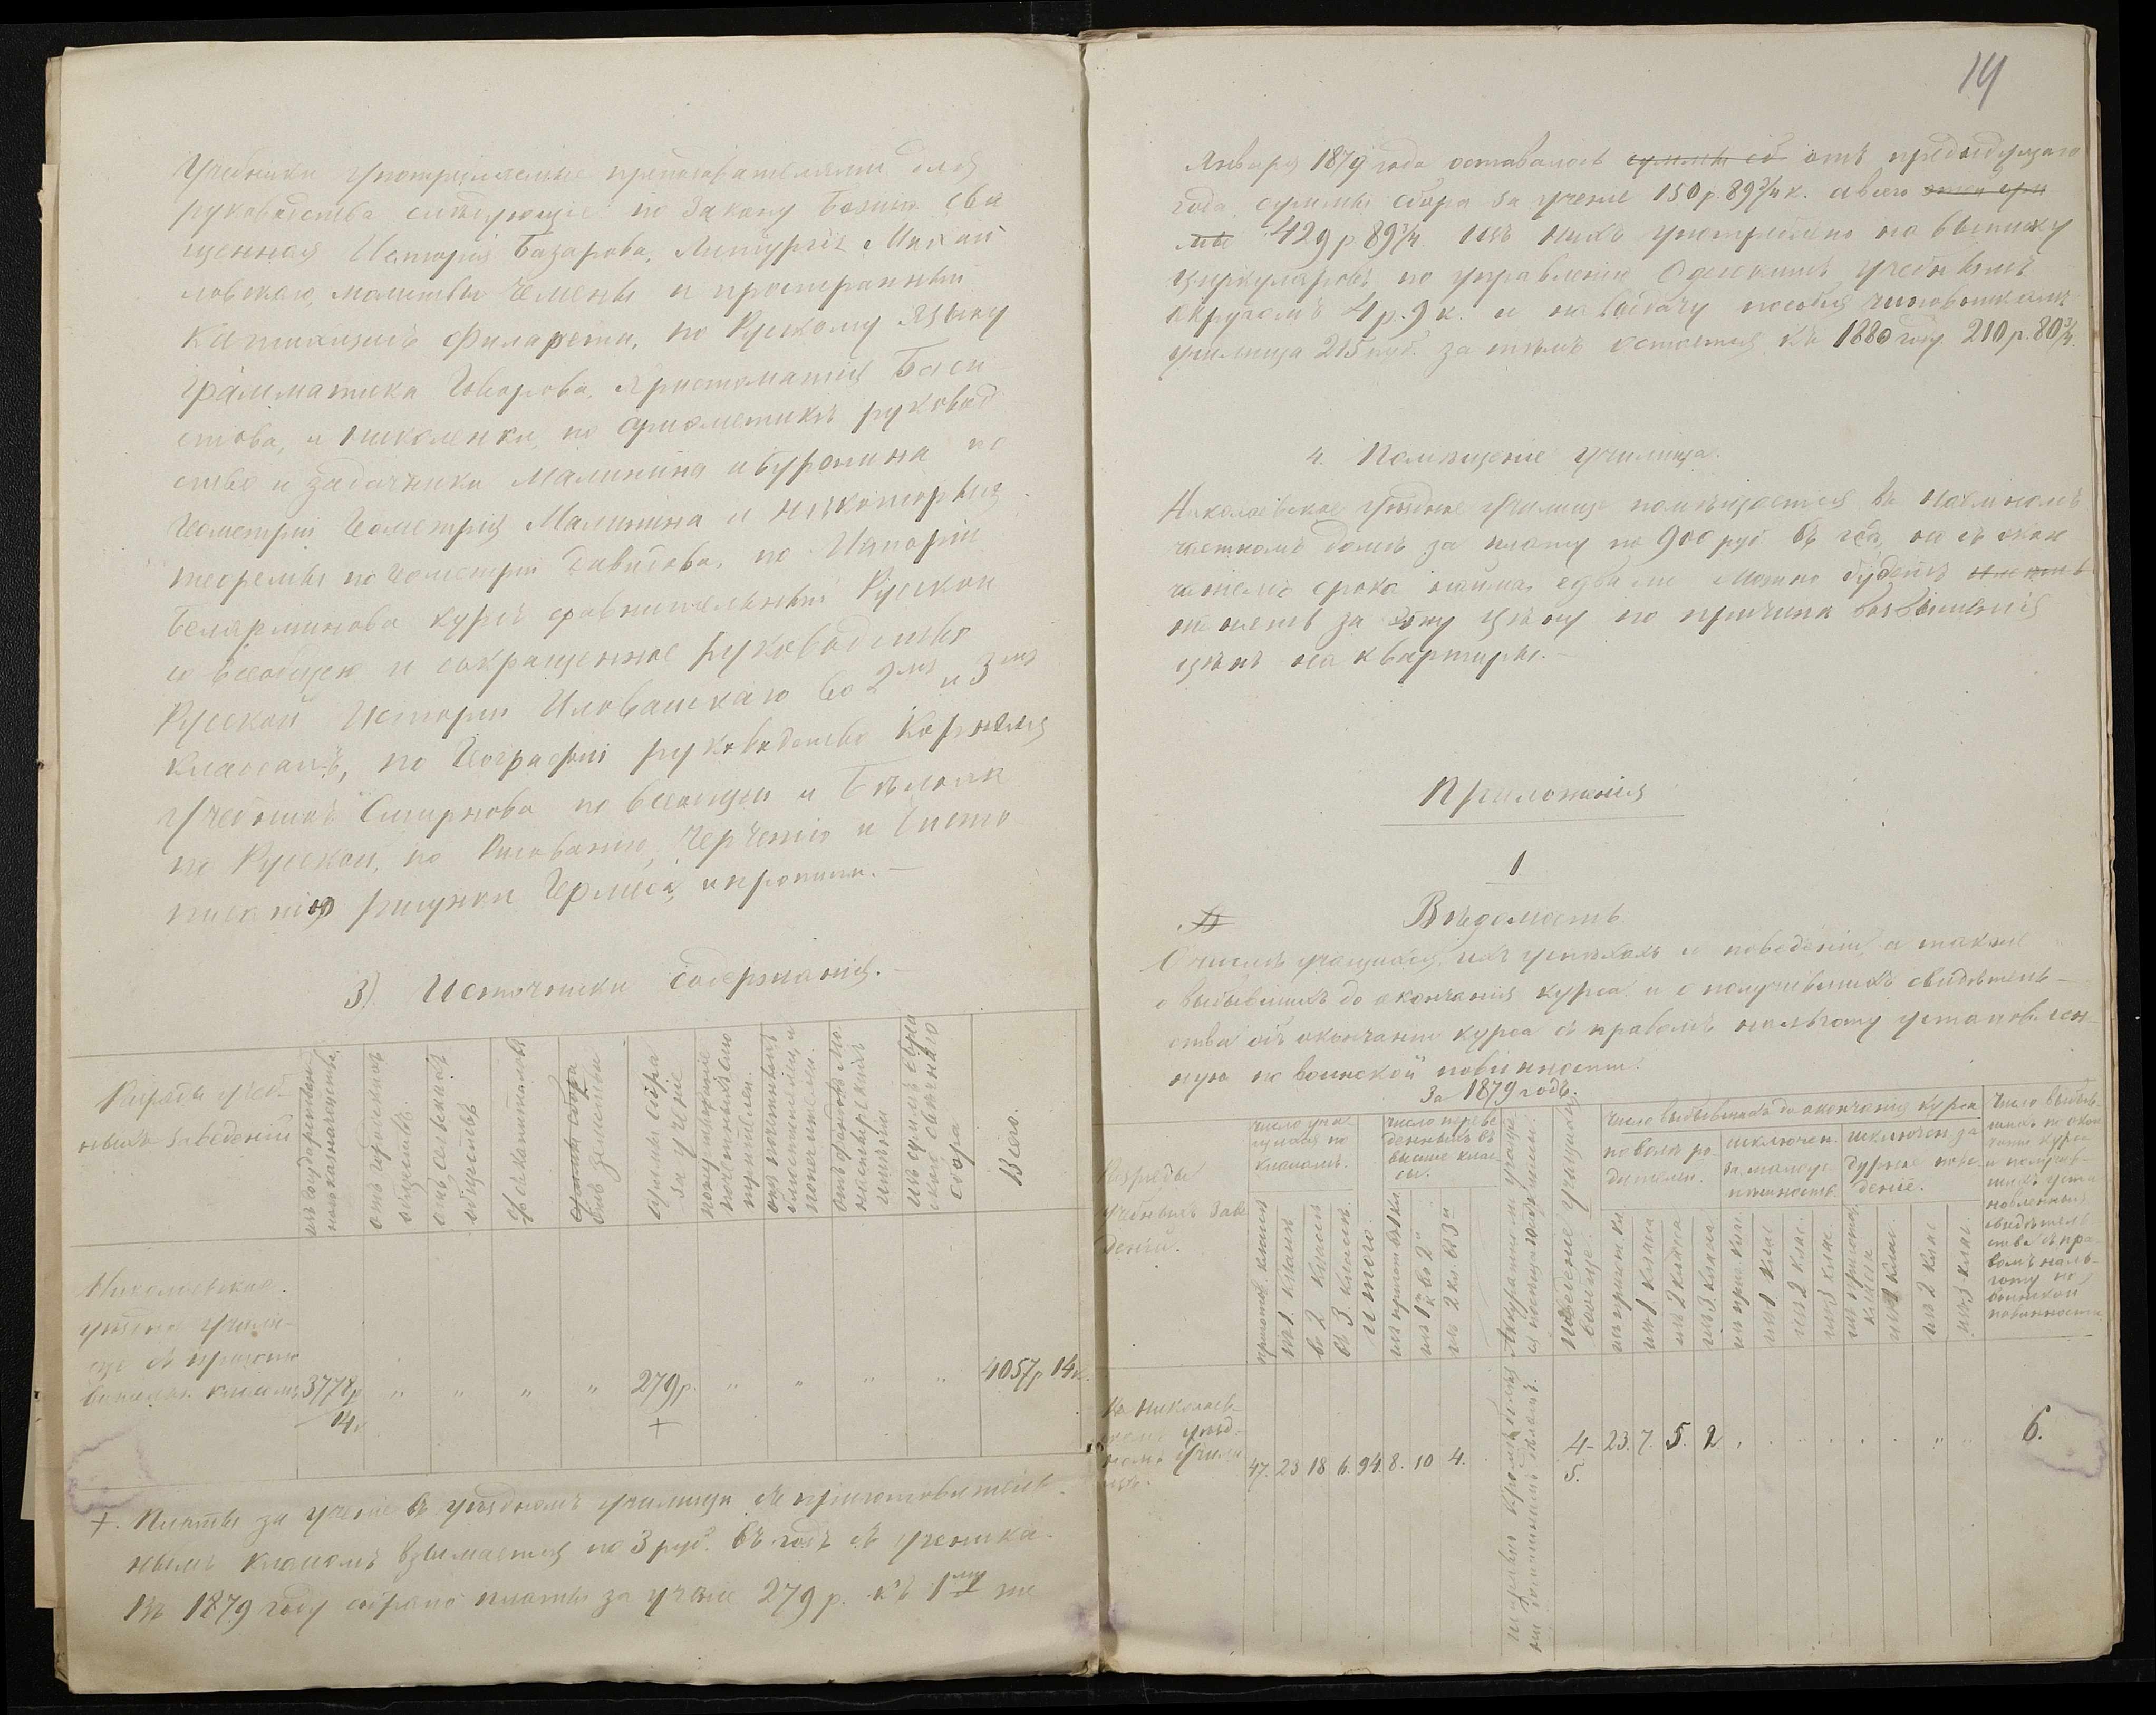 Учебники употребляемые преподавателями для
руководства следующiе: по Закону Божiю Свя
щенная Исторiя Базарова, Литургiя Михай
ловскаго, молитвы Чемены и пространный
Катихизисъ Филарета, по Русскому Языку
Грамматика Говорова, Христоматiя Баси
стова, и Николенки, по Ариөметикѣ руковод
ство и задачники Малинина и Буренина по
Геометрiи Геометрiя Малинина и нѣкоторыя
теоремы по Геометрiи Давидова, по Исторiи
Беллярминова курсъ сравнительный Русской
со всеобщею и сокращенное руководство
Русской Исторiи Иловайскаго во 2мъ и 3мъ
классахъ, по Географiи руководство Корнеля
Учебникъ Смирнова по всеобщей и Бѣлохи
по Русской, по Рисованiю, Черченiю и Чисто
писанiю рисунки Гермеса, и прописи. —
3). Источники содержанiя. —
Разряды учеб-
ныхъ заведенiй
изъ государствен
наго казначейства.
отъ городскихъ
обществъ.
отъ сельскихъ
обществъ
съ капиталовъ
суммы сбора
отъ земства
суммы сбора
за ученiе
пожертвованiе
почетныхъ блю
стителей
Всего.
Николаевское
уѣздное учили-
ще съ пригото
вительн. классомъ
3778р
14к
" " " "
279р.
+
" " " "
4057р 14к.
+. Платы за ученiе въ уѣздномъ училищѣ съ приготовитель-
нымъ классомъ взымается по 3 руб. въ годъ съ ученика.
Въ 1879 году собрано платы за ученiе 279 р. къ 1му же
14
Января 1879 года оставалось суммы сб отъ предыдущаго
года суммы сбора за ученiе 150 р. 89¾ к. а всего этой сум
мы 429 р 89¾. Изъ нихъ употреблено на выписку
циркуляровъ по управленiю Одесскимъ учебнымъ
округомъ 4 р. 9 к. и на выдачу пособiя чиновникамъ
училища 215 руб. за тѣмъ остается къ 1880 году 210 р. 80¾.
4. Помѣщенiе училища.
Николаевское уѣздное училище помѣщается въ наемномъ
частномъ домѣ за плату по 900 руб въ годъ, но съ окон
чанiемъ срока найма едва ли можно будетъ
нанять за эту цѣну по причинѣ возвышенiя
цѣнъ на квартиры. —
Приложенiя
1
Вѣдомость
О числѣ учащихся, ихъ успѣхахъ и поведенiи, а также
о выбывшихъ до окончанiя курса и о получившихъ свидѣтель-
ства объ окончанiи курса съ правомъ на льготу установлен-
ную по воинской повинности.
За 1879 годъ.
Разряды
учебныхъ заве
денiй.
число уча
щихся по
классамъ.
приготов. классъ
въ 1. классѣ
въ 2 классѣ
въ 3. классѣ.
итого.
число переве
денныхъ въ
высшiе клас
сы.
изъ пригот. въ 1 кл
изъ 1 к во 2 "
изъ 2 кл. въ 3 "
поведенiе учащихся
вообще.
Число выбывшихъ до окончанiя курса
по волѣ ро
дителей.
изъ пригот. кл.
изъ 1 класса
изъ 2 класса
изъ 3. класса
исключен.
за малоус
пѣшность.
изъ приг. клас.
изъ 1 клас
изъ 2 клас.
изъ 3 клас.
исключен. за
дурное пове
денiе.
изъ приготов.
класса
изъ 1 клас.
изъ 2 клас
изъ 3 клас.
Число выбыв-
шихъ по окон
чанiи курса
и получив-
шихъ уста
новленныя
свидѣтель
ства съ пра
вомъ на ль-
готу по
воинской
повинности.
Въ Николаев-
скомъ уѣзд-
номъ учили
щѣ.
47. 23 18 6. 94. 8. 10 4.
4-
5.
23. 7. 5. 2
6.